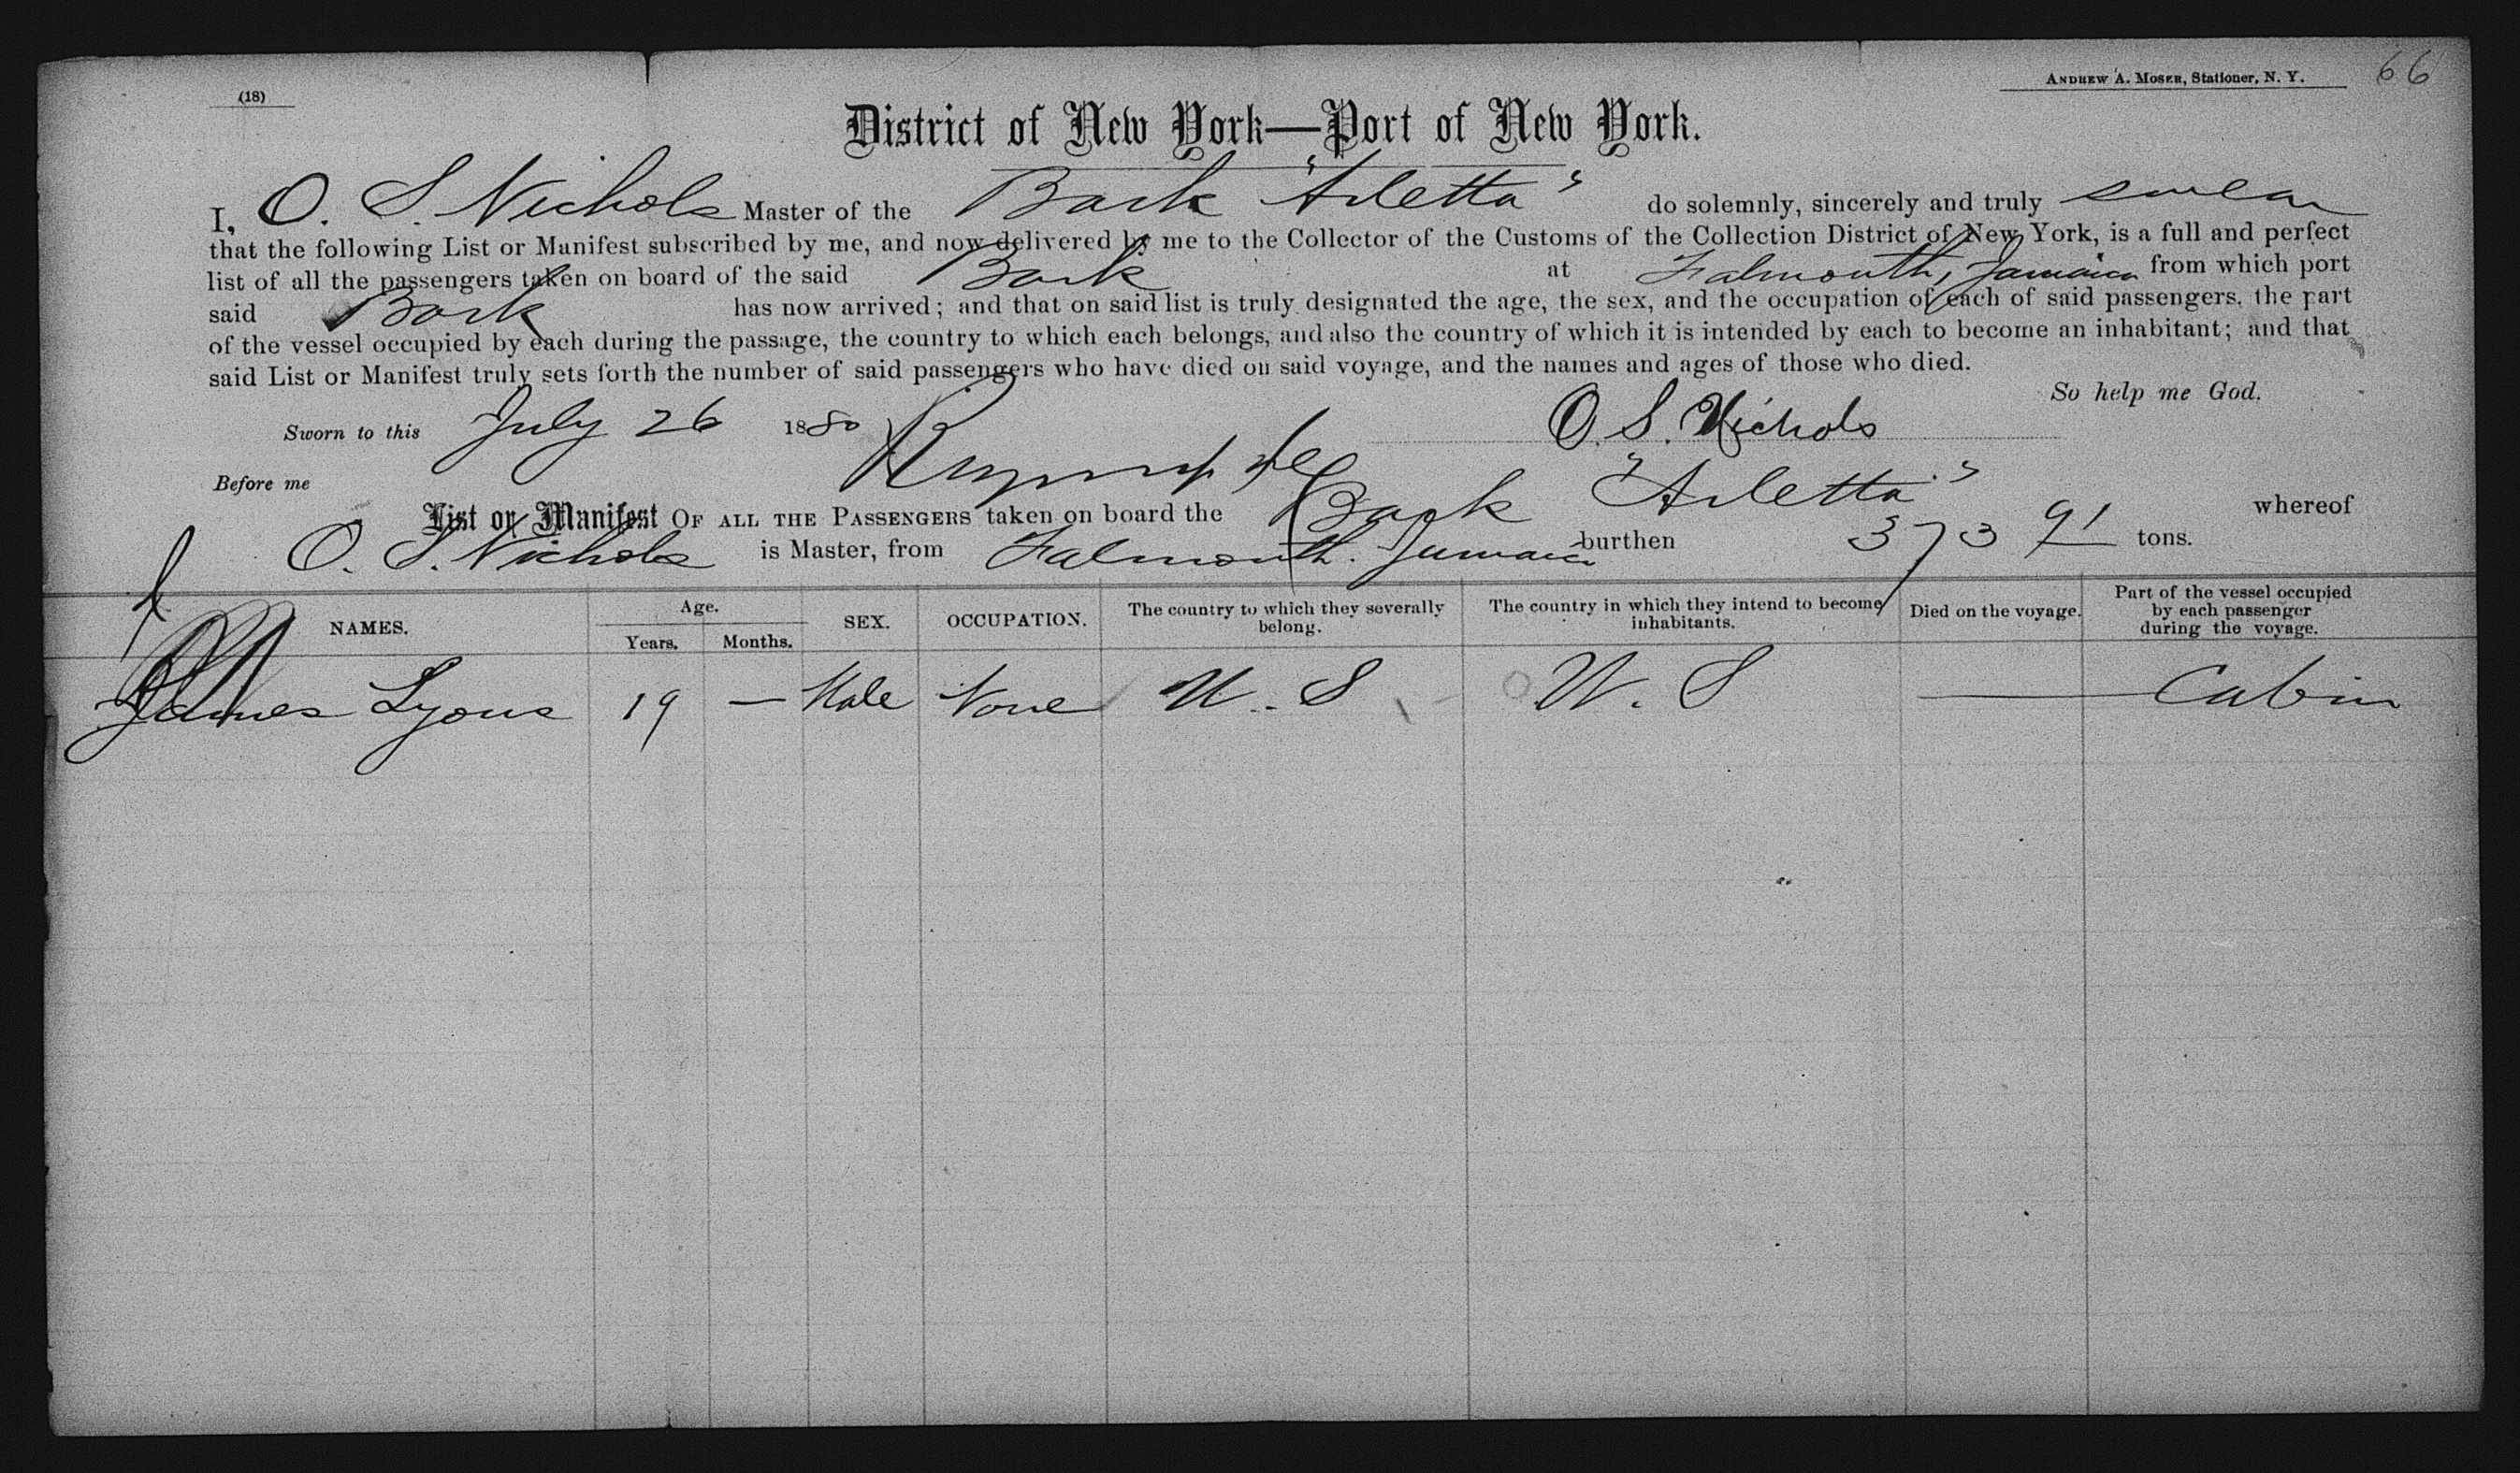 (18)
ANDREW A. MOSER, Stationer, N. Y. 66
District of New York—Port of New York.
I, O. S. Nichols Master of the Bark "Arletta" do solemnly, sincerely and truly swear
that the following List or Manifest subscribed by me, and now delivered by me to the Collector of the Customs of the Collection District of New York, is a full and perfect
list of all the passengers taken on board of the said Bark at Falmouth, Jamaica from which port
said Bark has now arrived; and that on said list is truly designated the age, the sex, and the occupation of each of said passengers, the part
of the vessel occupied by each during the passage, the country to which each belongs, and also the country of which it is intended by each to become an inhabitant; and that
said List or Manifest truly sets forth the number of said passengers who have died on said voyage, and the names and ages of those who died.
So help me God.
Sworn to this July 26 1880 O. S. Nichols
Before me
List or Manifest OF ALL THE PASSENGERS taken on board the Bark "Arletta" whereof
O. S. Nichols is Master, from Falmouth. Jamaica burthen 373 91 tons.
NAMES. Age. Years. Months. SEX. OCCUPATION. The country to which they severally belong. The country in which they intend to become inhabitants. Died on the voyage. Part of the vessel occupied by each passenger during the voyage.
James Lyons 19 — Male None U. S U. S — Cabin